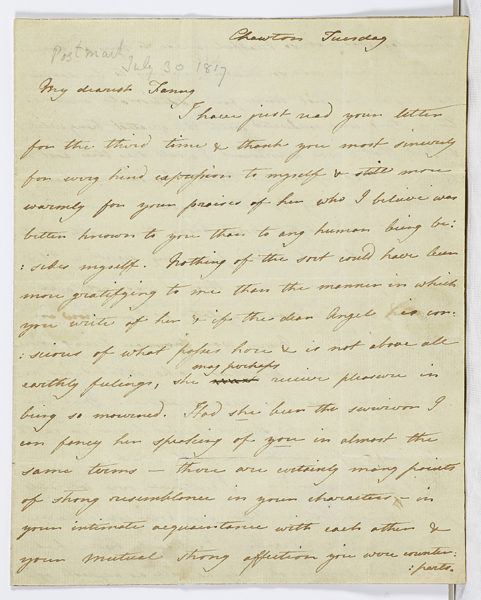 Chawton Tuesday
Postmark
July 30 1817
My dearest Fanny
I have just read your letter
for the third time & thank you most sincerely
for every kind expression to myself & still more
warmly for your praises of her who I believe was
better known to you than to any human being be:
:sides myself. Nothing of the sort could have been
more gratifying to me than the manner in which
you write of her & if the dear Angel is con:
:scious of what passes here & is not above all
may perhaps
earthly feelings, she receive pleasure in
being so mourned. Had she been the survivor I
can fancy her speaking of you in almost the
same terms – there are certainly many points
of strong resemblance in your characters – in
your intimate acquaintance with each other &
your mutual strong affection you were counter:
:parts.